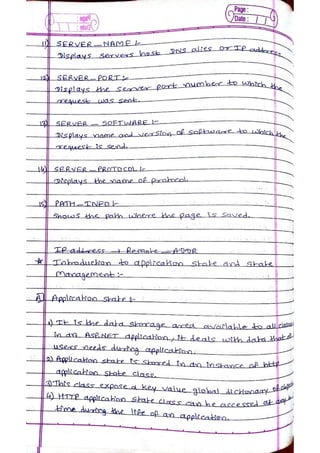 Page :
Date :
11) SERVER_NAME :-
Displays servers host DNS alies or IP address
12) SERVER_PORT :-
Displays the server port number to which the
request was sent.
13) SERVER_SOFTWARE :-
Displays name and version of software to which the
request is send.
14) SERVER_PROTOCOL :-
Displays the name of protocol.
15) PATH_INFO :-
Shows the path where the page is saved.
IP address → Remote_ADDR
* Introduction to application state and state
Management :-
A] Application state :-
1) It is the data storage area available to all classes
in an ASP.NET application, it deals with data that
users needs during application.
2) Application state is stored in an instance of http
application state class.
3) This class expose a key value global dictionary of objects
4) HTTP application state class can be accessed at any
time during the life of an application.